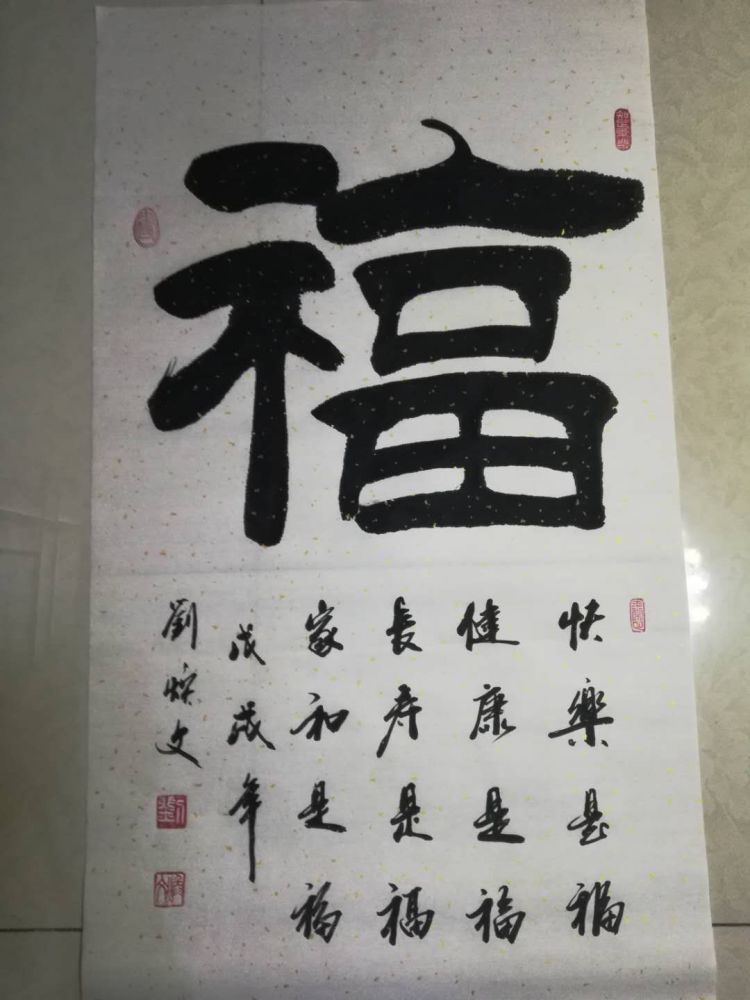 福
快樂是福
健康是福
長寿是福
家和是福
戊戌年
劉煥文